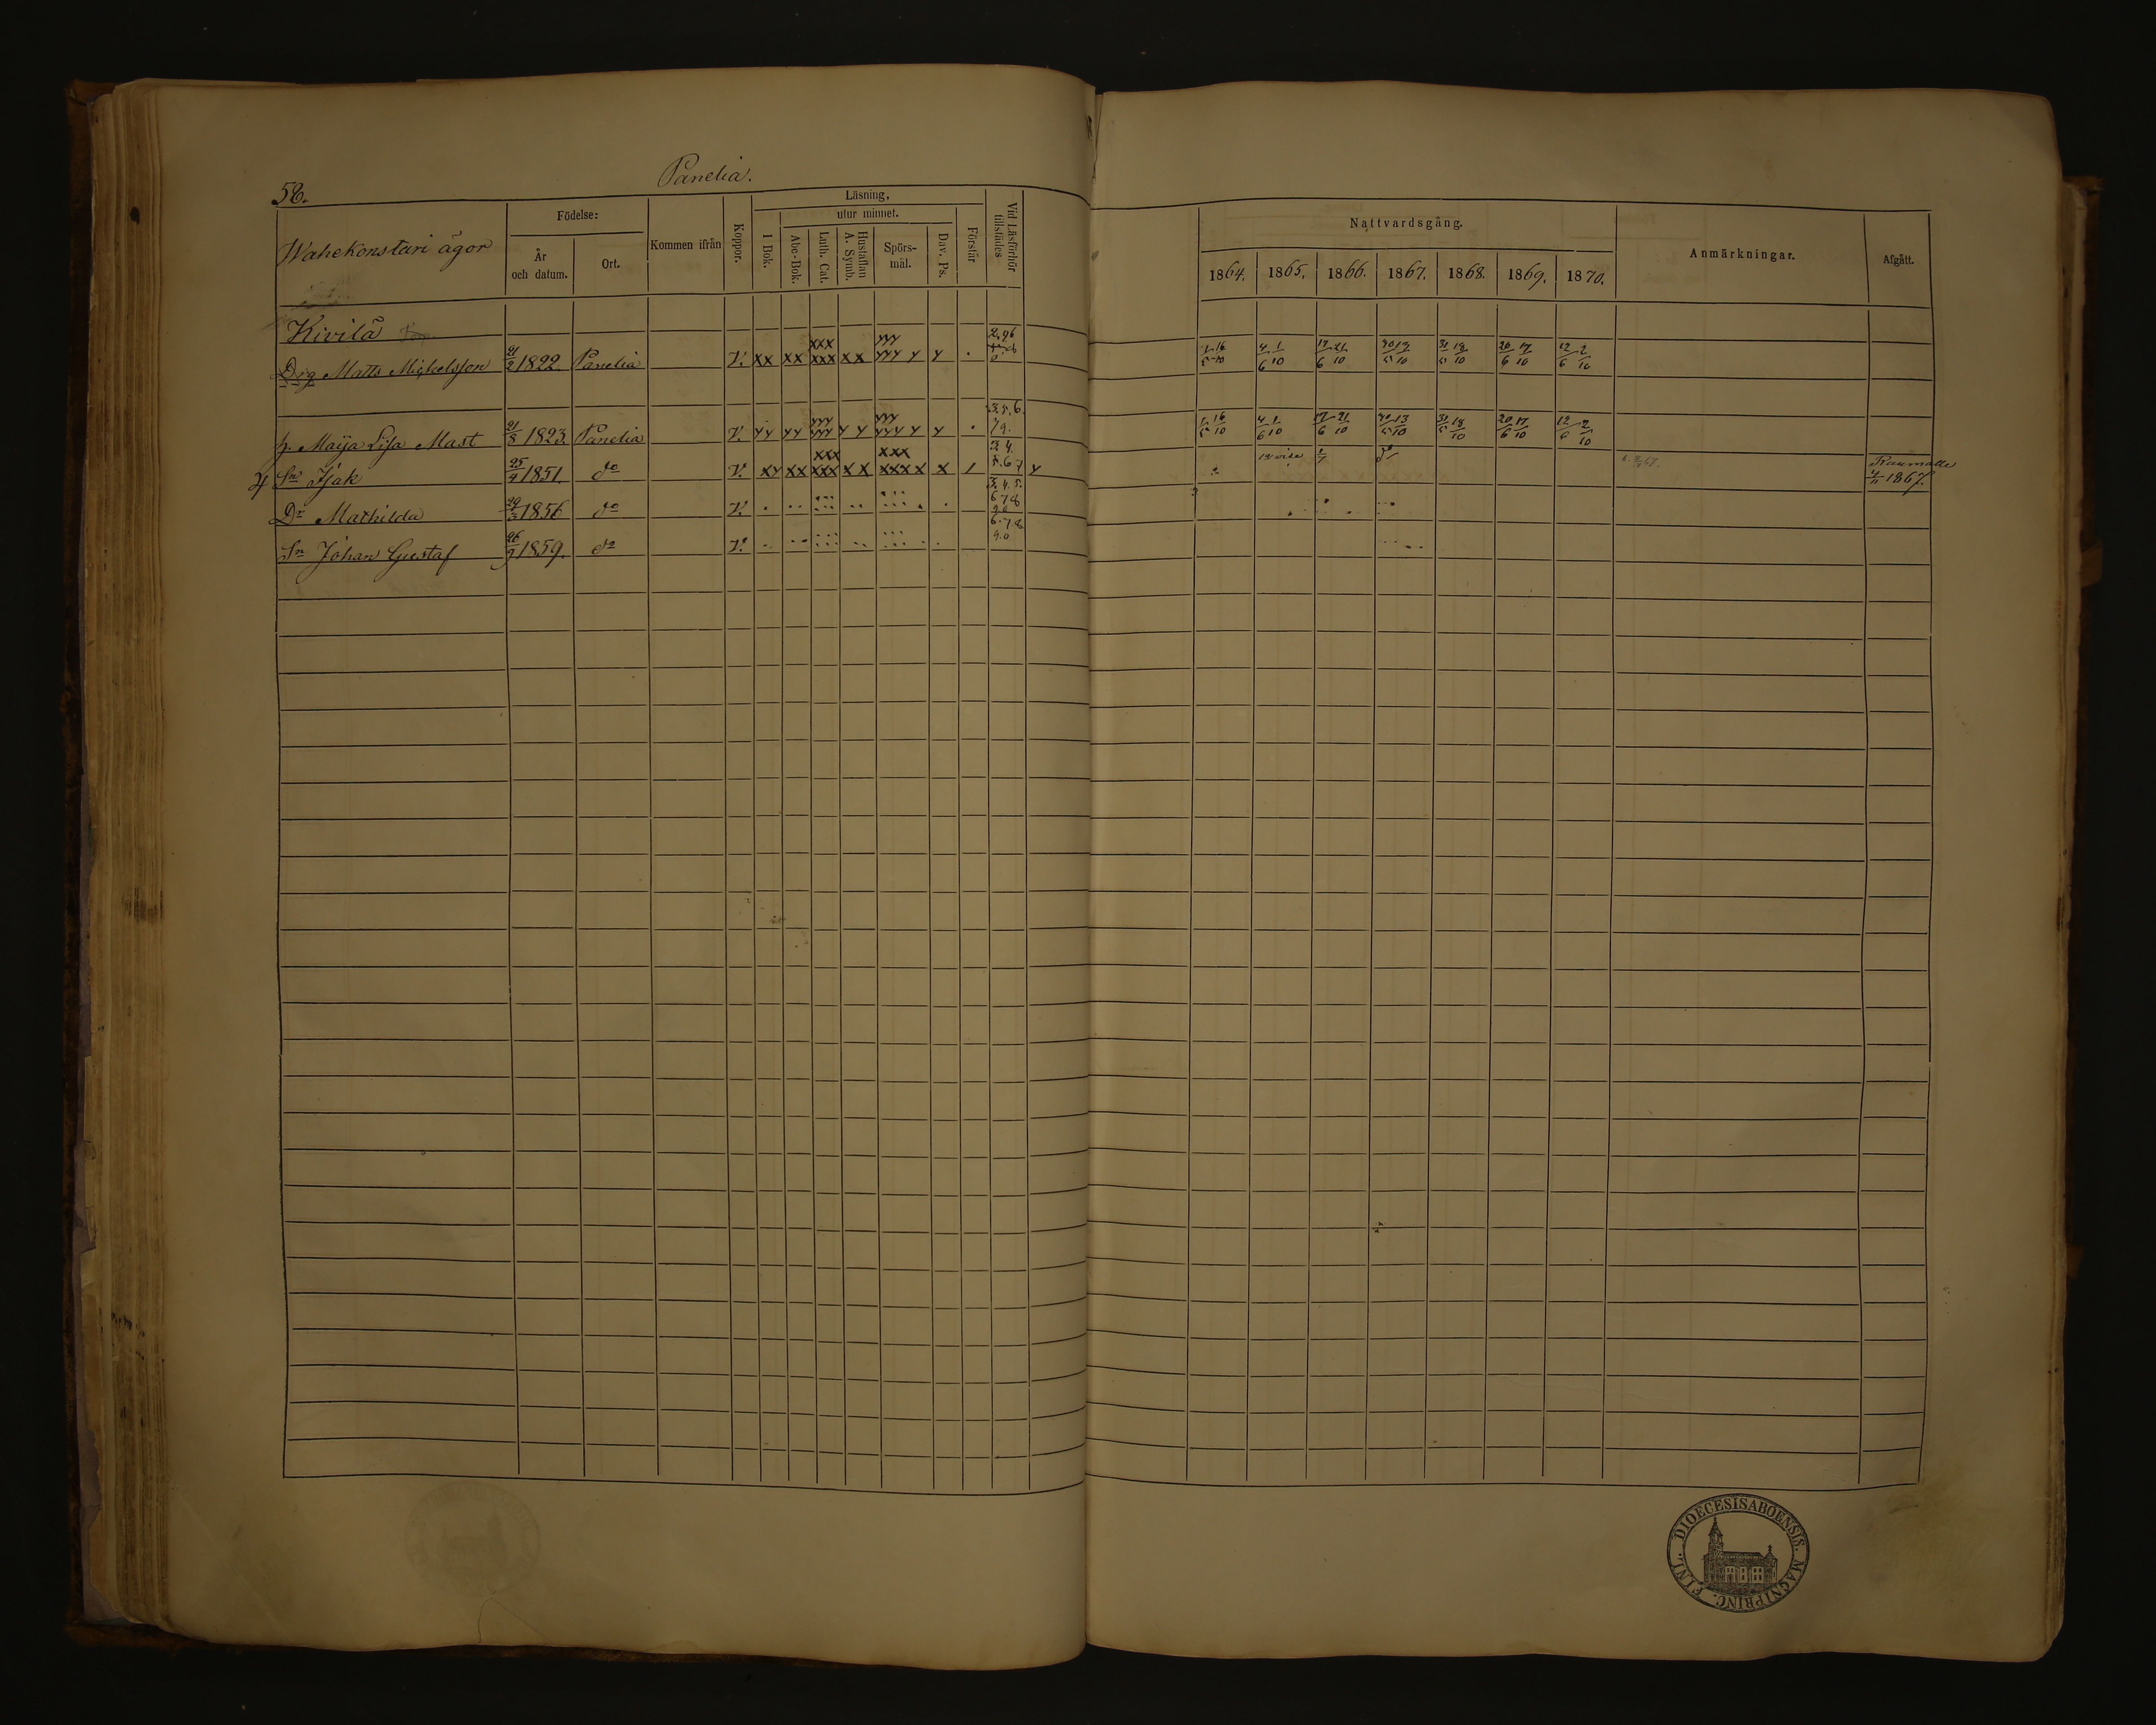 58.
Panelia.
Wahekonstari ägor
Födelse:
År och datum.
Ort.
Kommen ifrån
Koppor.
Läsning,
I Bok.
utur minnet.
Abc-Bok.
Luth. Cat.
Hustaflan A. Symb.
Spörs-mål.
Dav. Ps.
Förstår
Vid Läsförhör tillstädes
Nattvardsgång.
1864. 1865. 1866. 1867. 1868. 1869. 1870.
Anmärkningar.
Afgått.
Kivilä
Drg Matts Mickelsson 21/2 1822. Panelia V. xx xx xxx xxx xx yyy yyy y y . 1/5 16/10 4/6 1/10 17/6 21/10 30/5 13/10 31/5 18/10 20/6 17/10 12/6 2/10
h. Maija Lisa Mast 21/8 1823. Panelia V. yy yy yyy yyy y y yyy yyy y y . 3.5.6. 79. 1/5 16/10 4/6 1/10 17/6 21/10 30/5 13/10 31/5 18/10 20/6 17/10 12/6 2/10
Sn Isak 25/9 1851. do V. xy xx xxx xxx xx xxx xxx x x 1 3.4. 5.67 y Raumalle 4/11 1867.
Dr Mathilda 29/3 1856 do V. 3.4.5. 678
Sn Johan Gustaf 26/9 1859. do V. 6.7.8 9.0
DIOECESIS ABOENSIS. MAGNI PRINC. FINL.